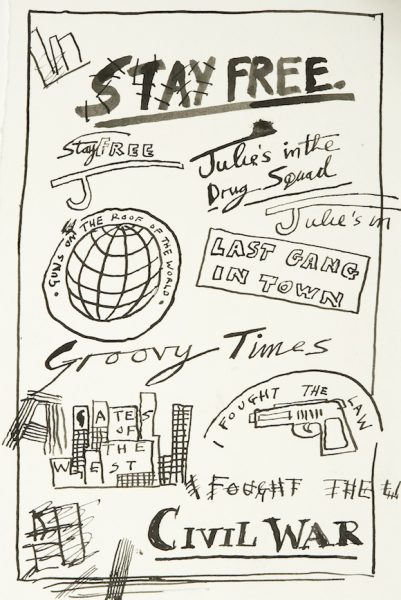 STAY FREE.
Stay FREE
Julie's in the
Drug Squad
J
Julie's in
GUNS ON THE ROOF OF THE WORLD
LAST GANG
IN TOWN
Groovy Times
GATES
OF
THE
WEST
I FOUGHT THE LAW
I FOUGHT THE
CIVIL WAR